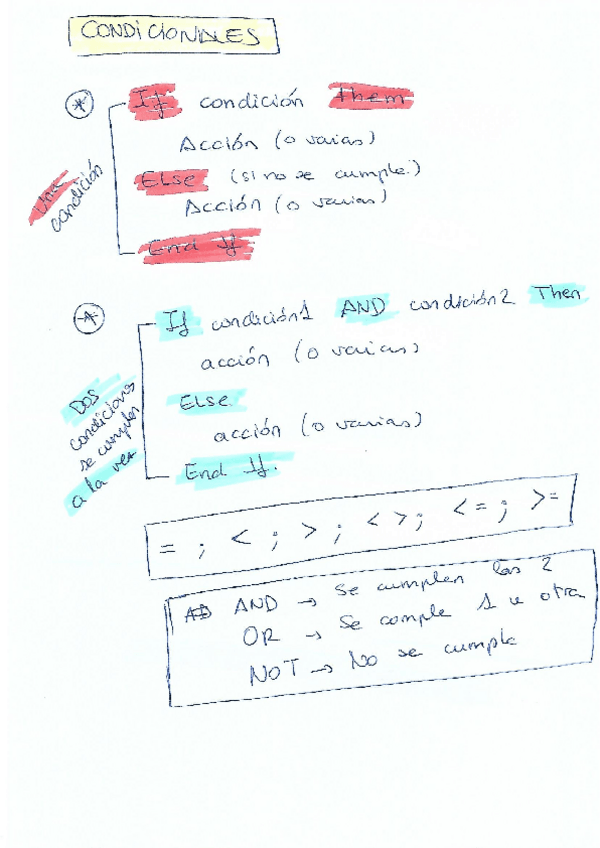 CONDICIONALES
* If condición Then
Acción (o varias)
Else (si no se cumple)
Acción (o varias)
End If
Una
condición
* If condición1 AND condición2 Then
acción (o varias)
Else
acción (o varias)
End If.
Dos
condiciones
se cumplen
a la vez
= ; < ; > ; < > ; < = ; > =
AD AND → Se cumplen las 2
OR → Se comple 1 u otra
NOT → No se cumple